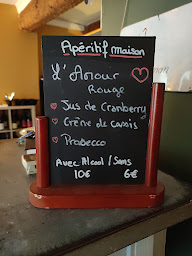 Apéritif maison
L'Amour
Rouge
Jus de Cranberry
Crème de cassis
Prosecco
Avec Alcool / Sans
10€ 6€